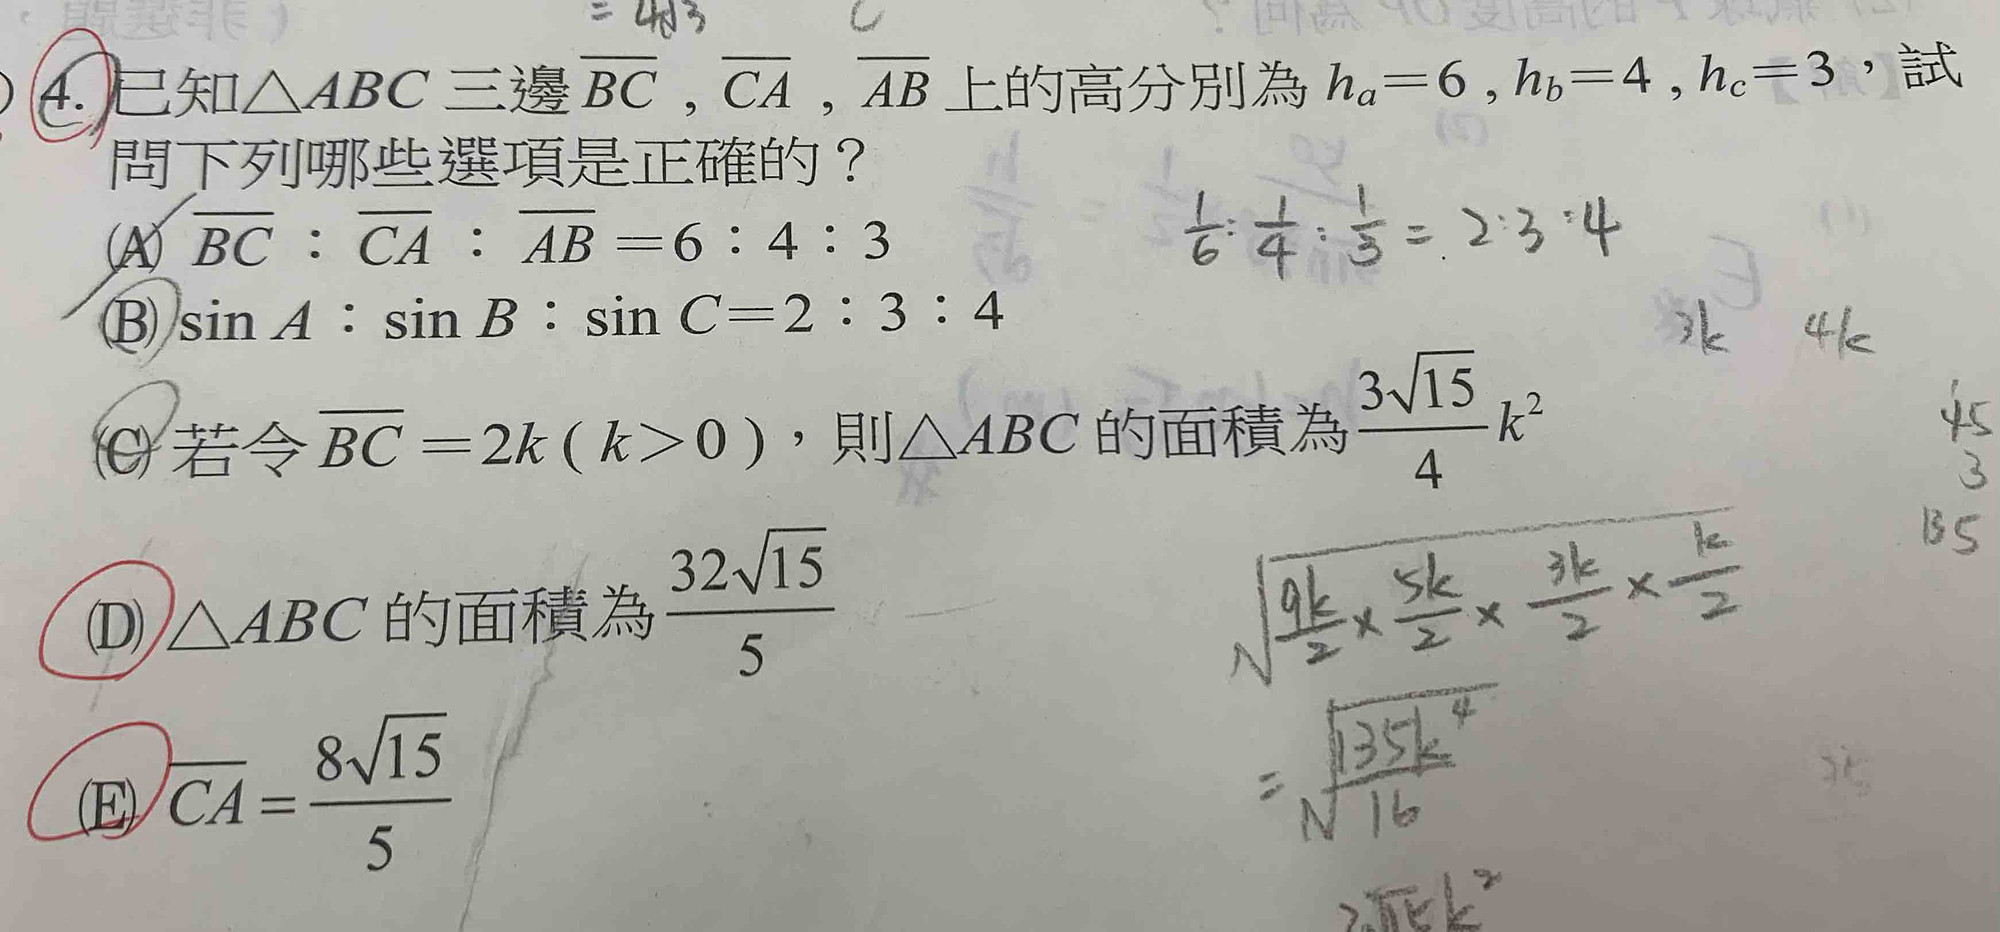 = 4√3
4. 已知△ABC 三邊 \overline{BC} , \overline{CA} , \overline{AB} 上的高分別為 hₐ=6 , h_b=4 , h_c=3，試
問下列哪些選項是正確的？
(A) \overline{BC} : \overline{CA} : \overline{AB} =6：4：3
1/6 : 1/4 : 1/3 = 2:3:4
(B) sin A：sin B：sin C=2：3：4
3k 4k
(C) 若令 \overline{BC} =2k ( k>0 )，則△ABC 的面積為 3√15/4 k²
45
3
135
(D) △ABC 的面積為 32√15/5
√(9k/2 × 5k/2 × 3k/2 × k/2)
= √(135k⁴/16)
(E) \overline{CA} = 8√15/5